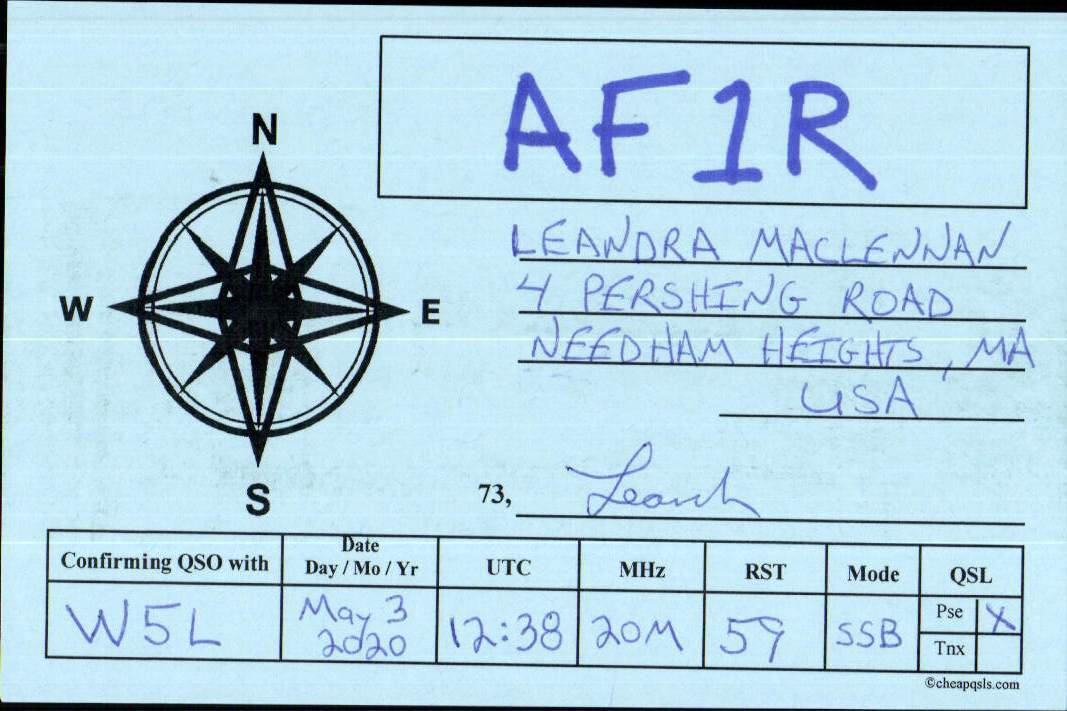 AF1R
N
W E
S
LEANDRA MACLENNAN
4 PERSHING ROAD
NEEDHAM HEIGHTS, MA
USA
73,
Confirming QSO with
Date
Day / Mo / Yr
UTC
MHz
RST
Mode
QSL
W5L
May 3
2020
12:38
20M
59
SSB
Pse X
Tnx
©cheapqsls.com